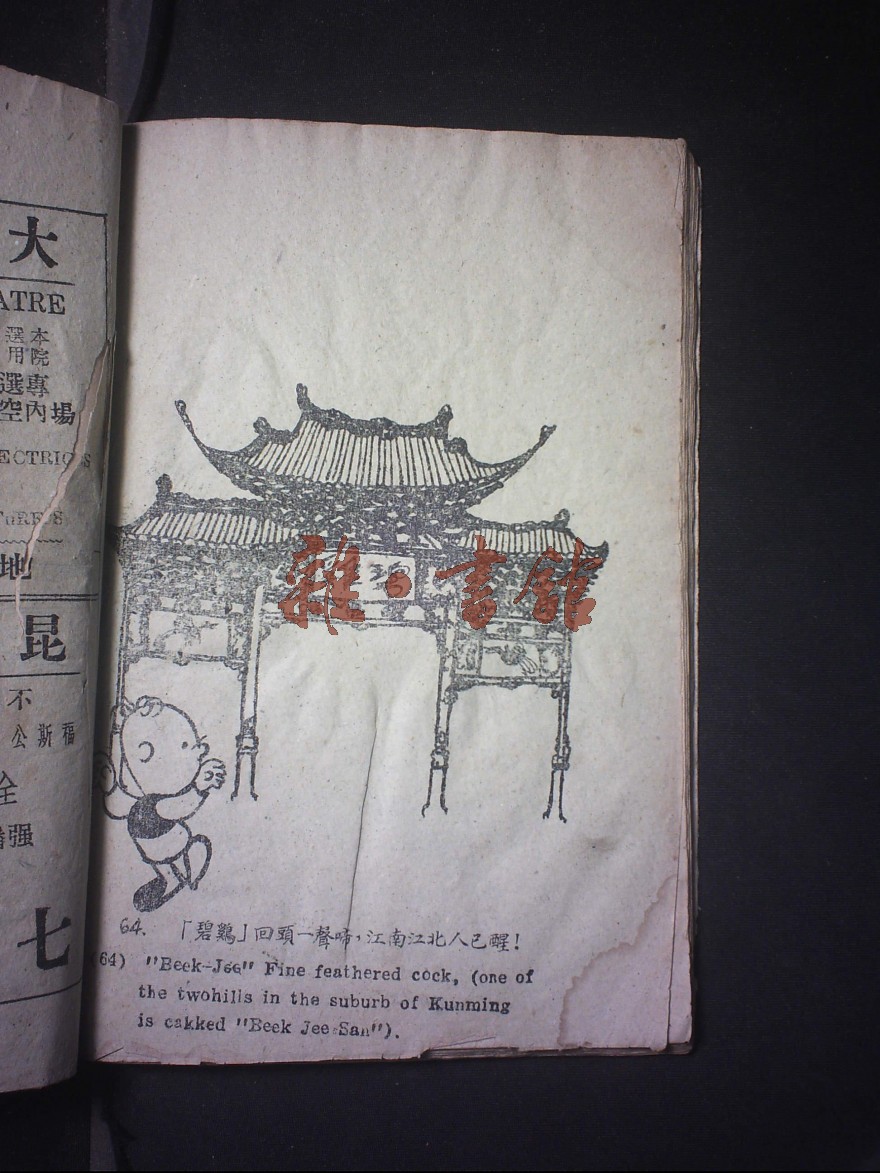 大
ATRE
本院
選用
專
選
場內空
ECTRIC
地
昆
不
福斯公
全
强
七
碧
雜·書舘
64. 「碧鷄」回頭一聲啼,江南江北人已醒!
64) "Beek-Jee" Fine feathered cock, (one of
the twohills in the suburb of Kunming
is cakked "Beek Jee San").